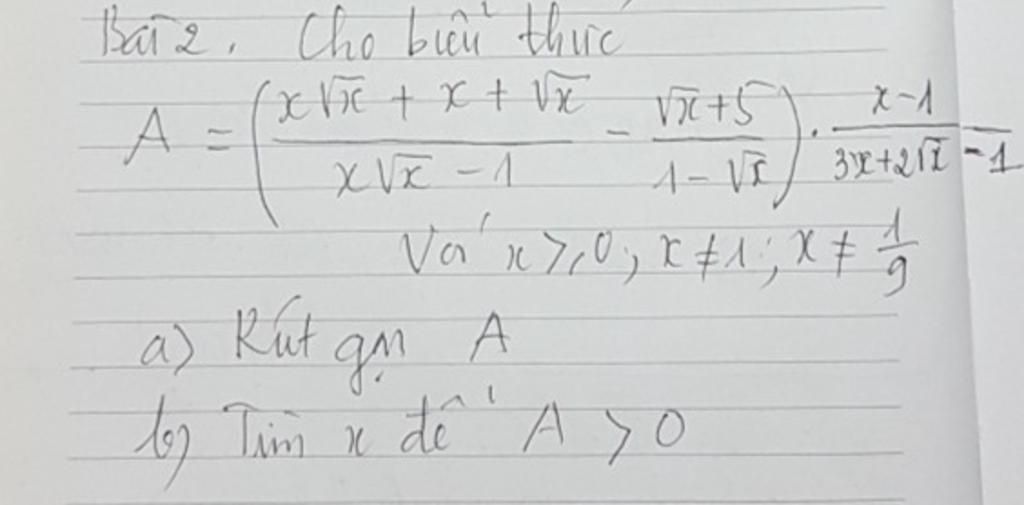 Bài 2. Cho biểu thức
A = (\frac{x\sqrt{x} + x + \sqrt{x}}{x\sqrt{x} - 1} - \frac{\sqrt{x} + 5}{1 - \sqrt{x}}) . \frac{x - 1}{3x + 2\sqrt{x} - 1}
Với x ⩾ 0 ; x ≠ 1 ; x ≠ \frac{1}{9}
a) Rút gọn A
b) Tìm x để A > 0